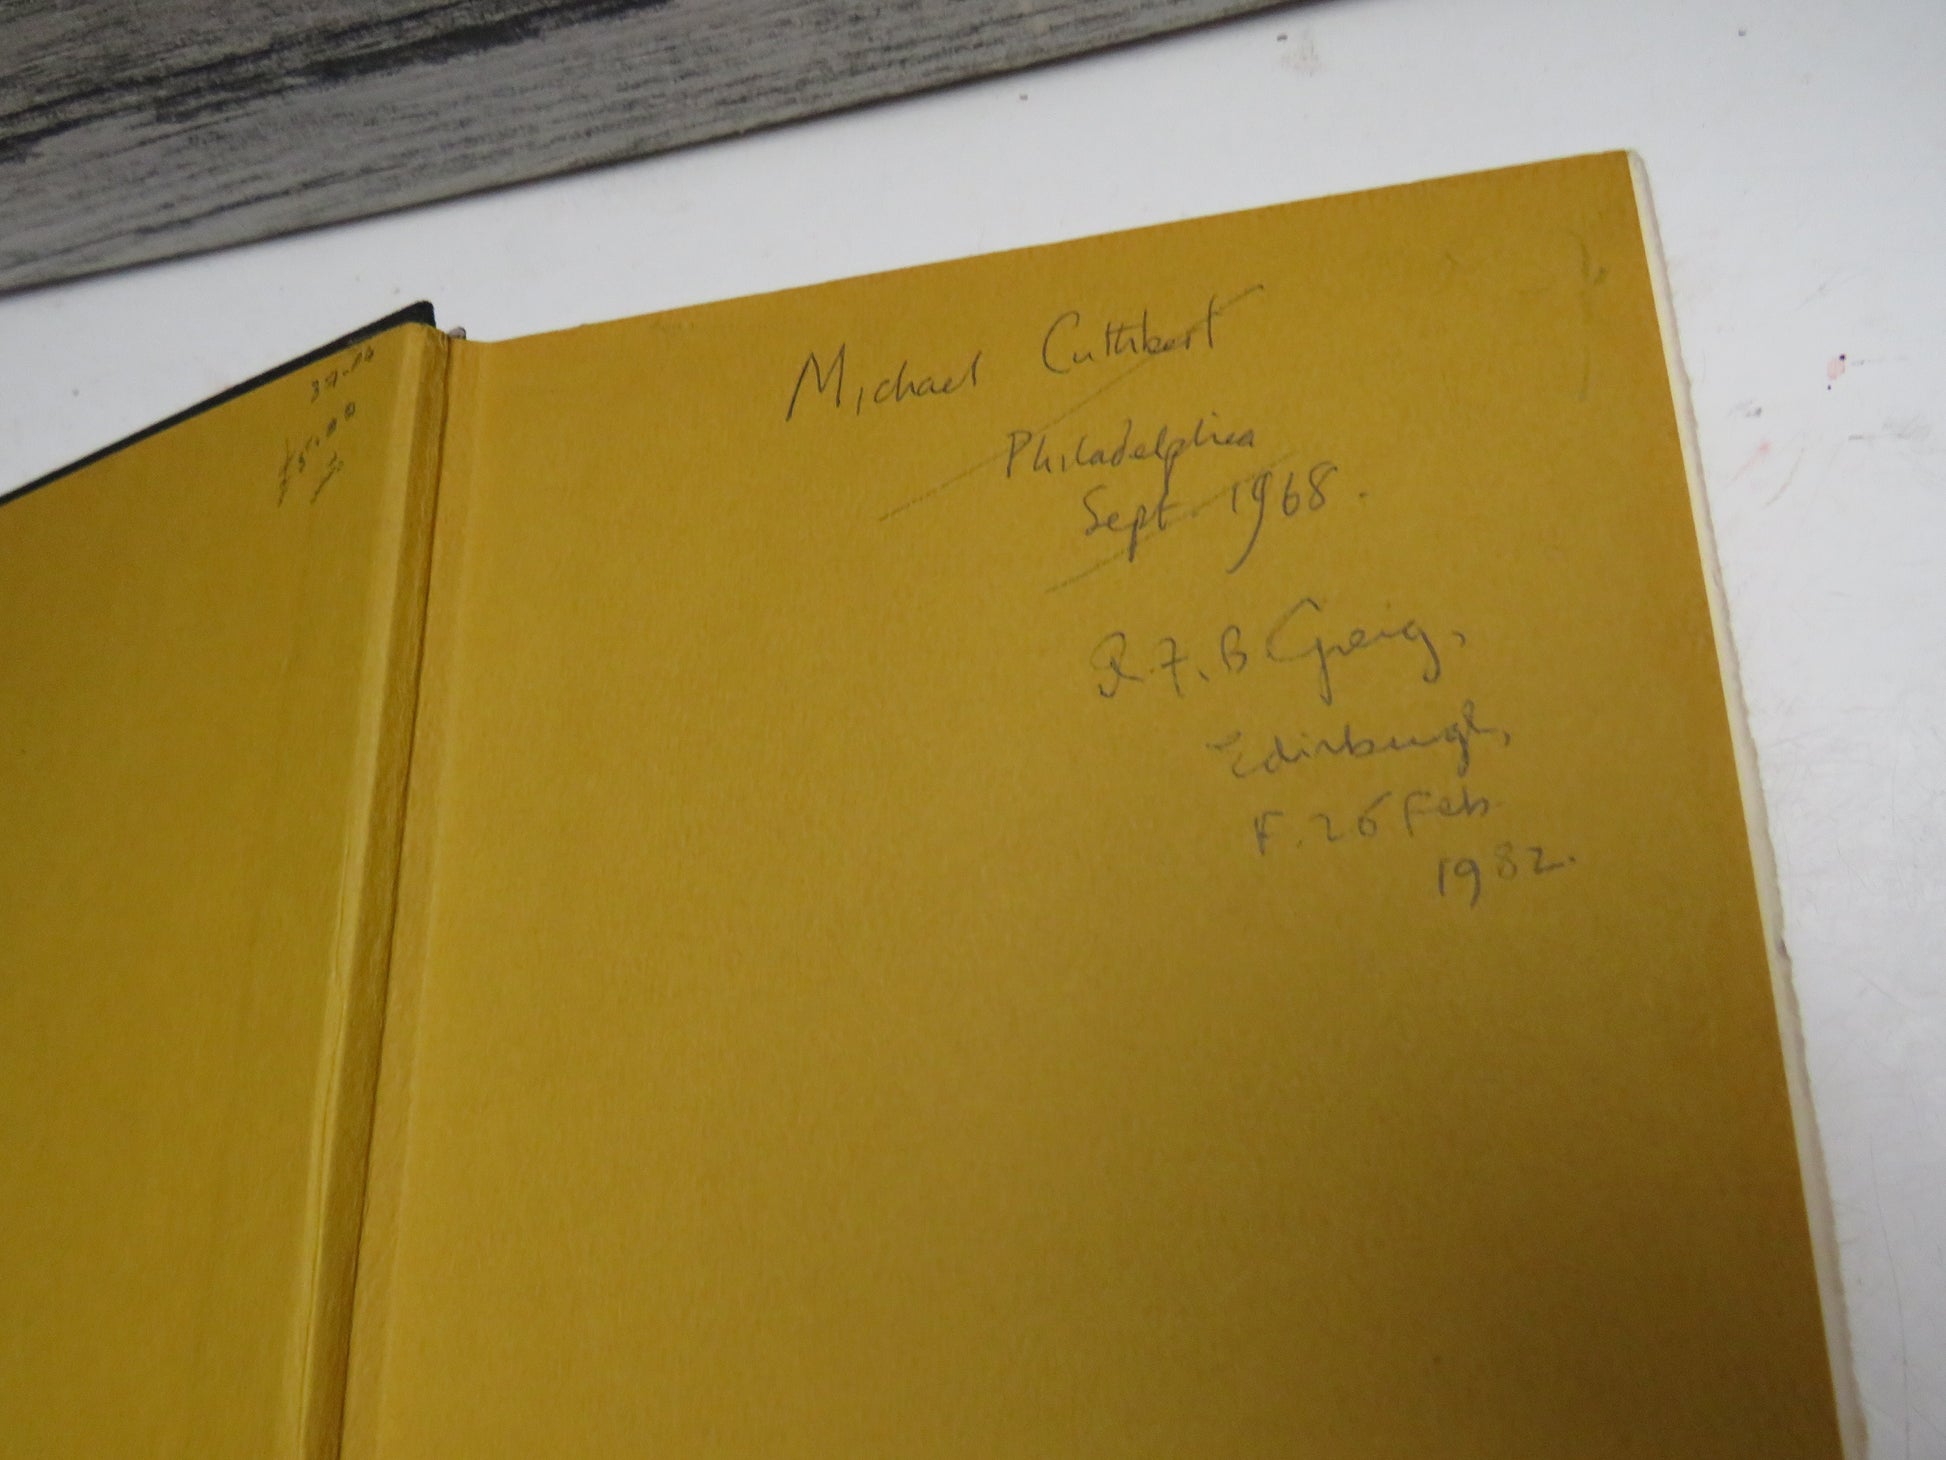 37.00
£5.00
Michael Cuthbert
Philadelphia
Sept. 1968.
R.F.B Greig,
Edinburgh,
F. 26 Feb
1982.